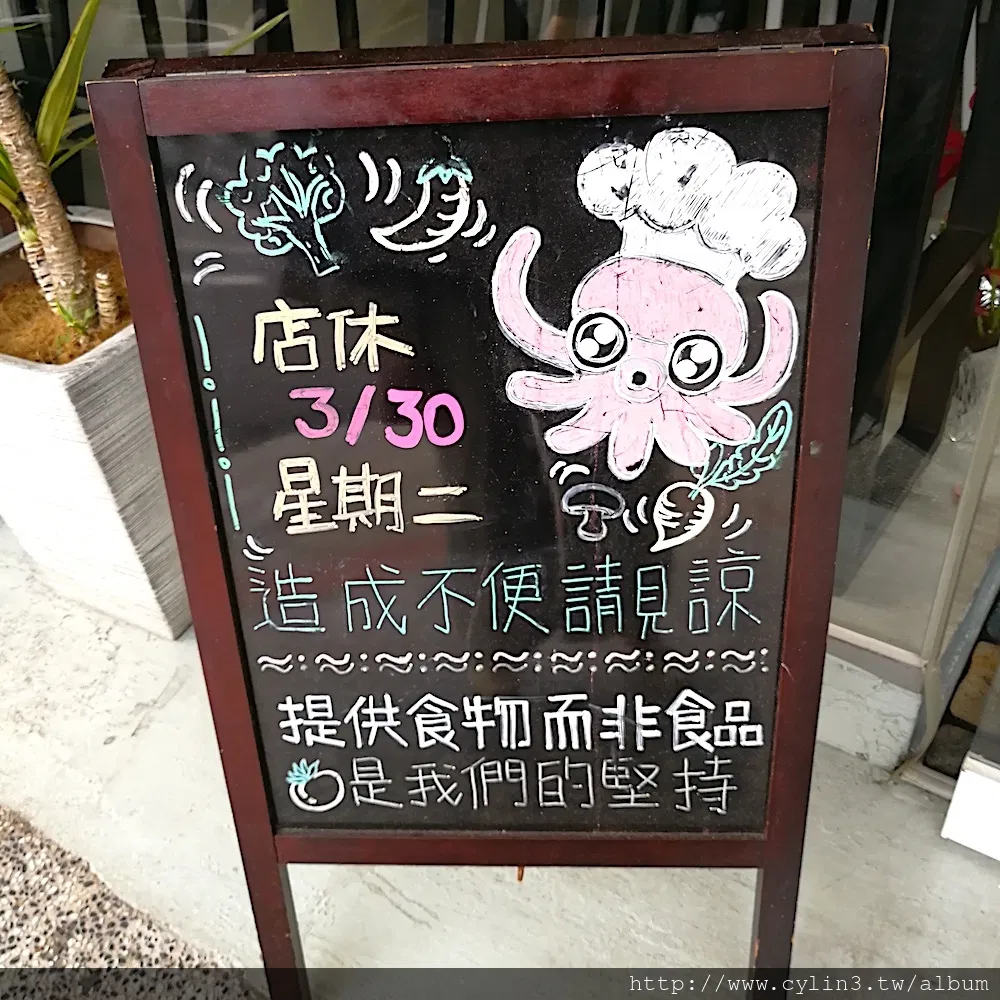 店休
3/30
星期二
造成不便請見諒
提供食物而非食品
是我們的堅持
http://www.cylin3.tw/album